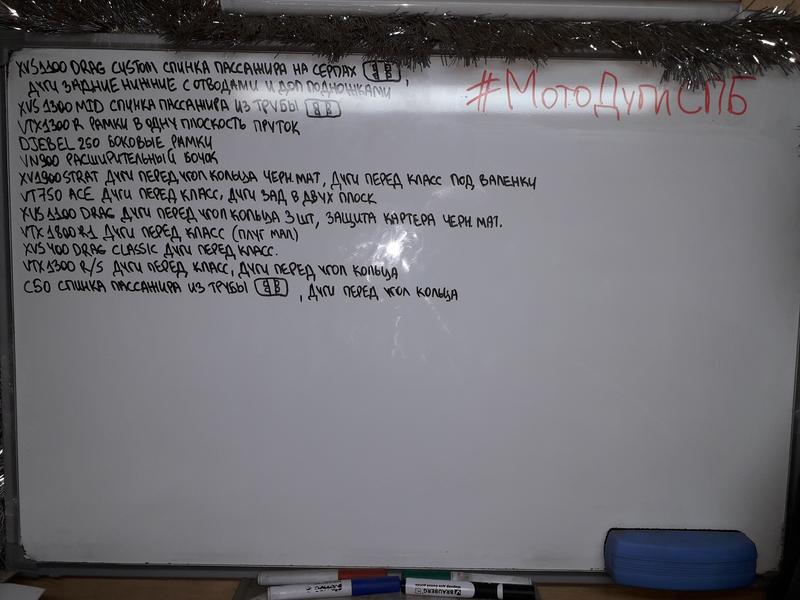 #МотоДугиСПБ
XVS1100 DRAG CUSTOM СПИНКА ПАССАЖИРА НА СЕРПАХ ,
ДУГИ ЗАДНИЕ НИЖНИЕ С ОТВОДАМИ И ДОП ПОДНОЖКАМИ
XVS 1300 MID СПИНКА ПАССАЖИРА ИЗ ТРУБЫ
VTX1300R РАМКИ В ОДНУ ПЛОСКОСТЬ ПРУТОК
DJEBEL 250 БОКОВЫЕ РАМКИ
VN900 РАСШИРИТЕЛЬНЫЙ БОЧОК
XV1900STRAT ДУГИ ПЕРЕД УГОЛ КОЛЬЦА ЧЕРН.МАТ, ДУГИ ПЕРЕД КЛАСС ПОД ВАЛЕНКИ
VT750 ACE ДУГИ ПЕРЕД КЛАСС, ДУГИ ЗАД В ДВУХ ПЛОСК
XVS 1100 DRAG ДУГИ ПЕРЕД УГОЛ КОЛЬЦА 3 ШТ, ЗАЩИТА КАРТЕРА ЧЕРН. МАТ.
VTX 1800R1 ДУГИ ПЕРЕД КЛАСС (ПЛУГ МАЛ)
XVS 400 DRAG CLASSIC ДУГИ ПЕРЕД КЛАСС.
VTX1300 R/S ДУГИ ПЕРЕД КЛАСС, ДУГИ ПЕРЕД УГОЛ КОЛЬЦА
C50 СПИНКА ПАССАЖИРА ИЗ ТРУБЫ , ДУГИ ПЕРЕД УГОЛ КОЛЬЦА
BRAUBERG